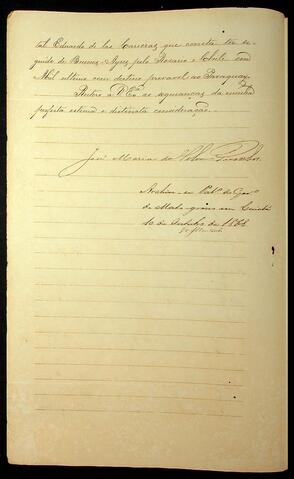 tal Eduardo de las Carreras que consta ter se-
guido de Buenos-Ayres pelo Rosario e Chile em
Abril ultimo com destino provavel ao Paraguay.
Reitero a V. Ex.ª as seguranças da minha
perfeita estima e distincta consideração.
José Maria da Silva Paranhos
Archive-se. Pal.º do Gov.º
de Mato-grosso em Cuiabá
10 de Outubro de 1868